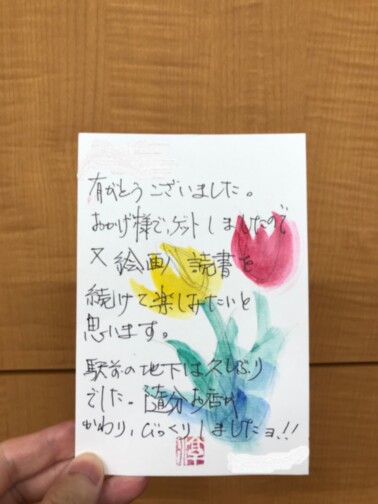 有がとうございました。
おかげ様で、ゲットしましたので
又 絵画、読書を
続けて楽しみたいと
思います。
駅前の地下は久しぶり
でした。随分お店が
かわり、びっくりしましたョ!!